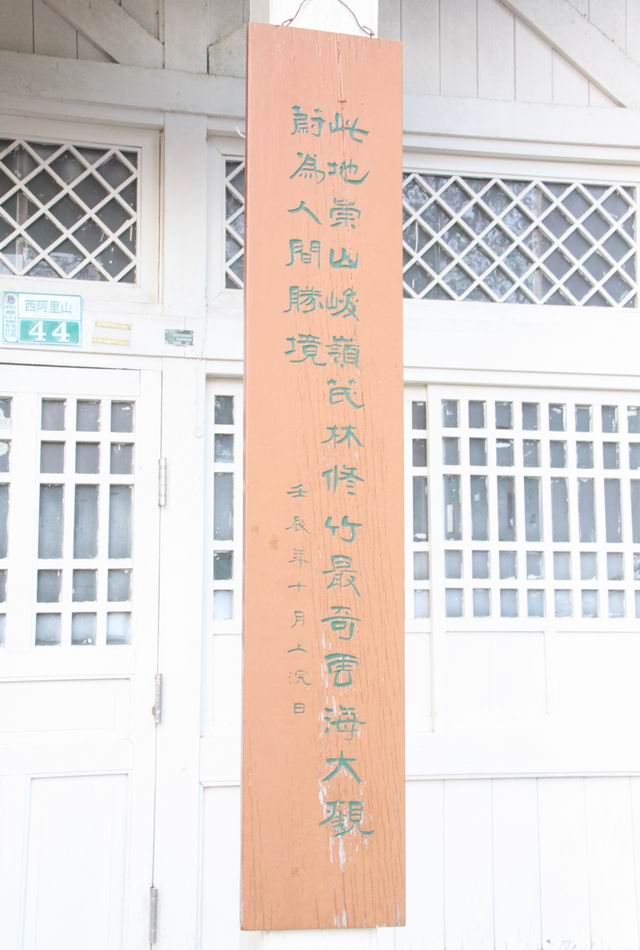 此地崇山峻嶺茂林修竹最奇雲海大觀
蔚為人間勝境
壬辰年十月上浣日
西阿里山
44